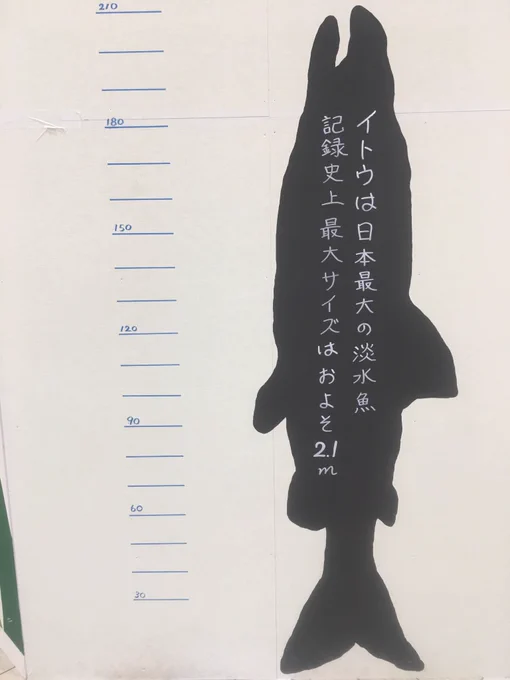 イトウは日本最大の淡水魚
記録史上最大サイズはおよそ2.1m
210
180
150
120
90
60
30